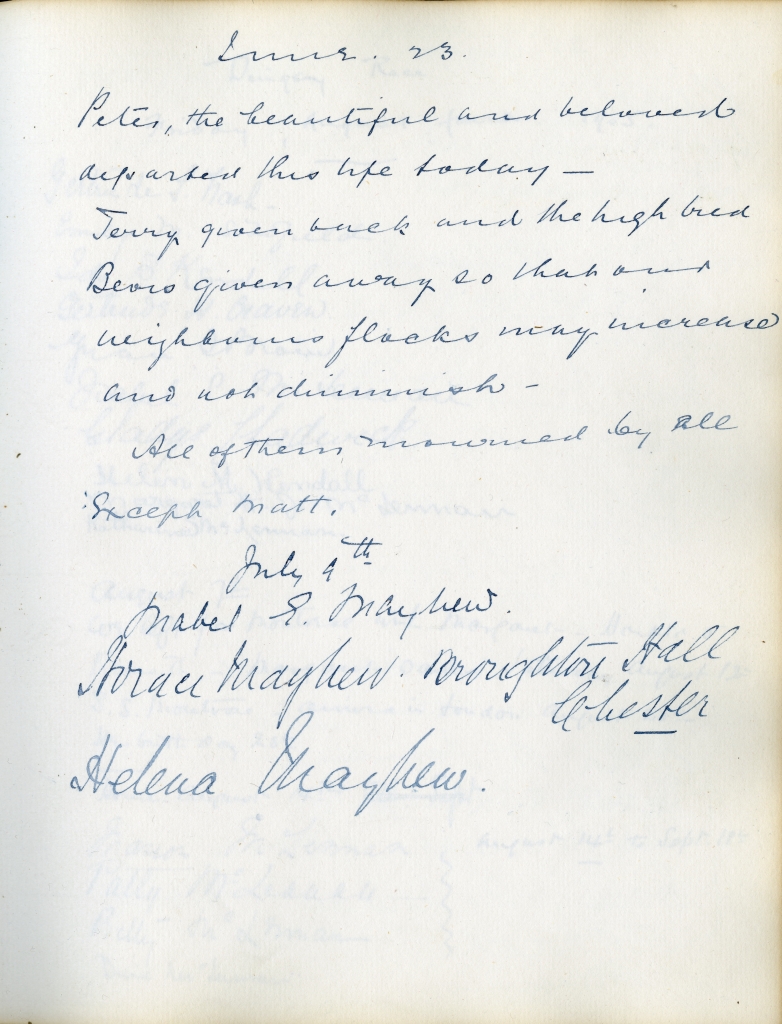 June. 23.
Peter, the beautiful and beloved
departed this life today —
Terry given back and the high bred
Bevis given away so that our
neighbours flocks may increase
and not diminish —
All of them mourned by all
Except Matt.
July 9th
Mabel E. Mayhew.
Horace Mayhew. Broughton Hall
Chester
Helena Mayhew.